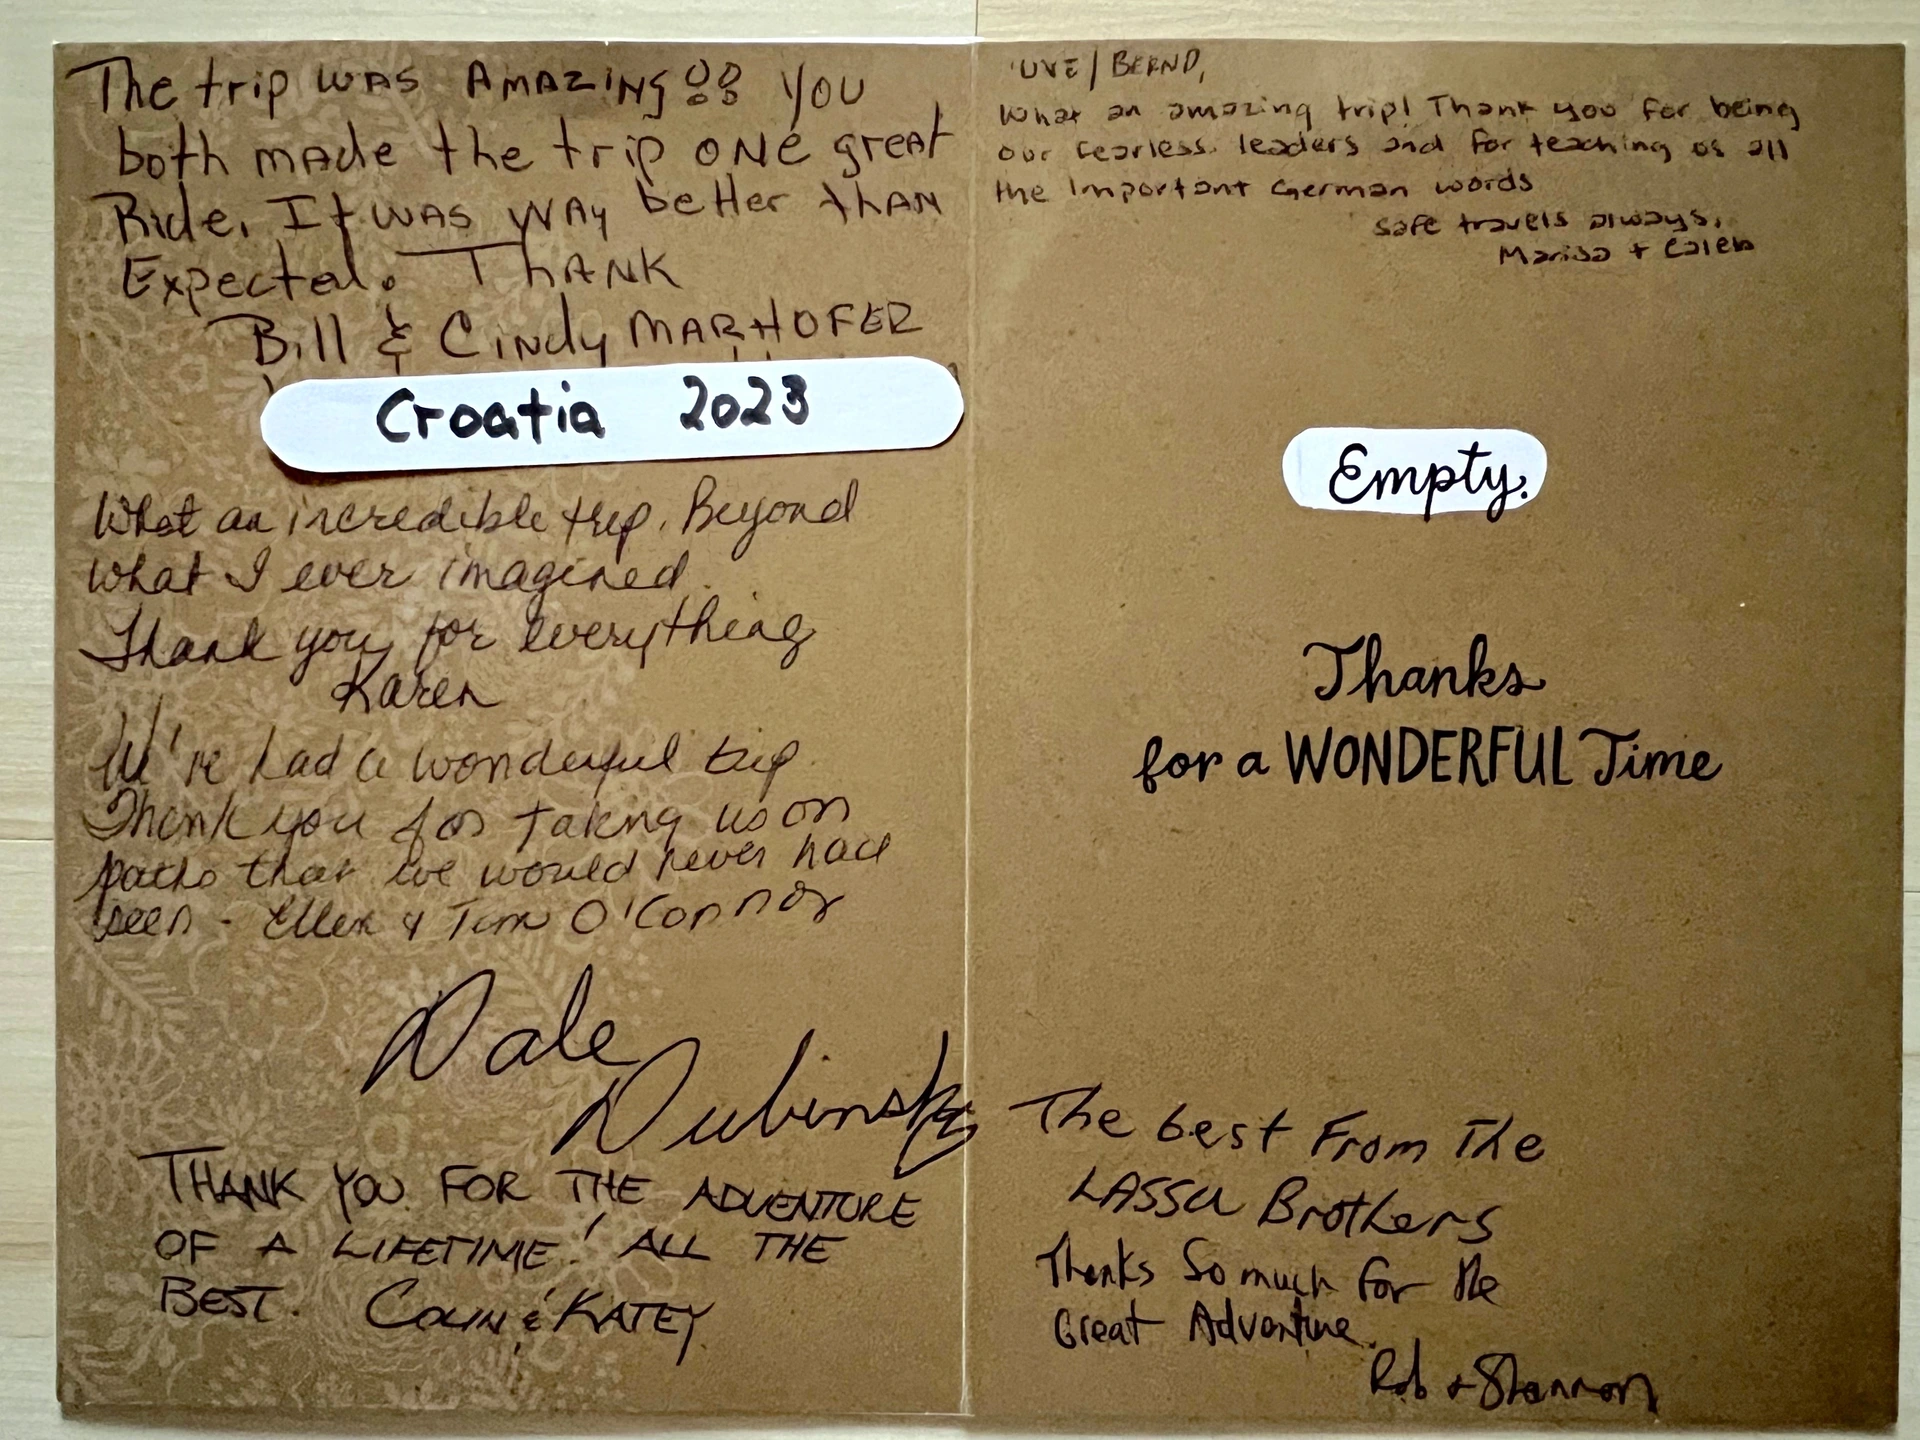 The trip WAS AMAZING!! YOU
both made the trip ONE great
Ride. It WAS WAy better thAN
Expected. ThANK
Bill & Cindy MARHOFER
Croatia 2023
What an incredible trip. Beyond
what I ever imagined.
Thank you for everything
Karen
We've had a wonderful trip.
Thank you for taking us on
paths that we would never had
seen - Ellen & Tim O'Connor
Dale
Dubinsky
THANK YOU FOR THE ADVENTURE
OF A LIFETIME! ALL THE
BEST. COLIN & KATEY
UVE/BERND,
What an amazing trip! Thank you for being
our fearless leaders and for teaching us all
the important German words
safe travels always,
Marisa + Caleb
Empty.
Thanks
for a WONDERFUL Time
The best From The
LASSU Brothers
Thanks So much for the
Great Adventure.
Rob + Shannon